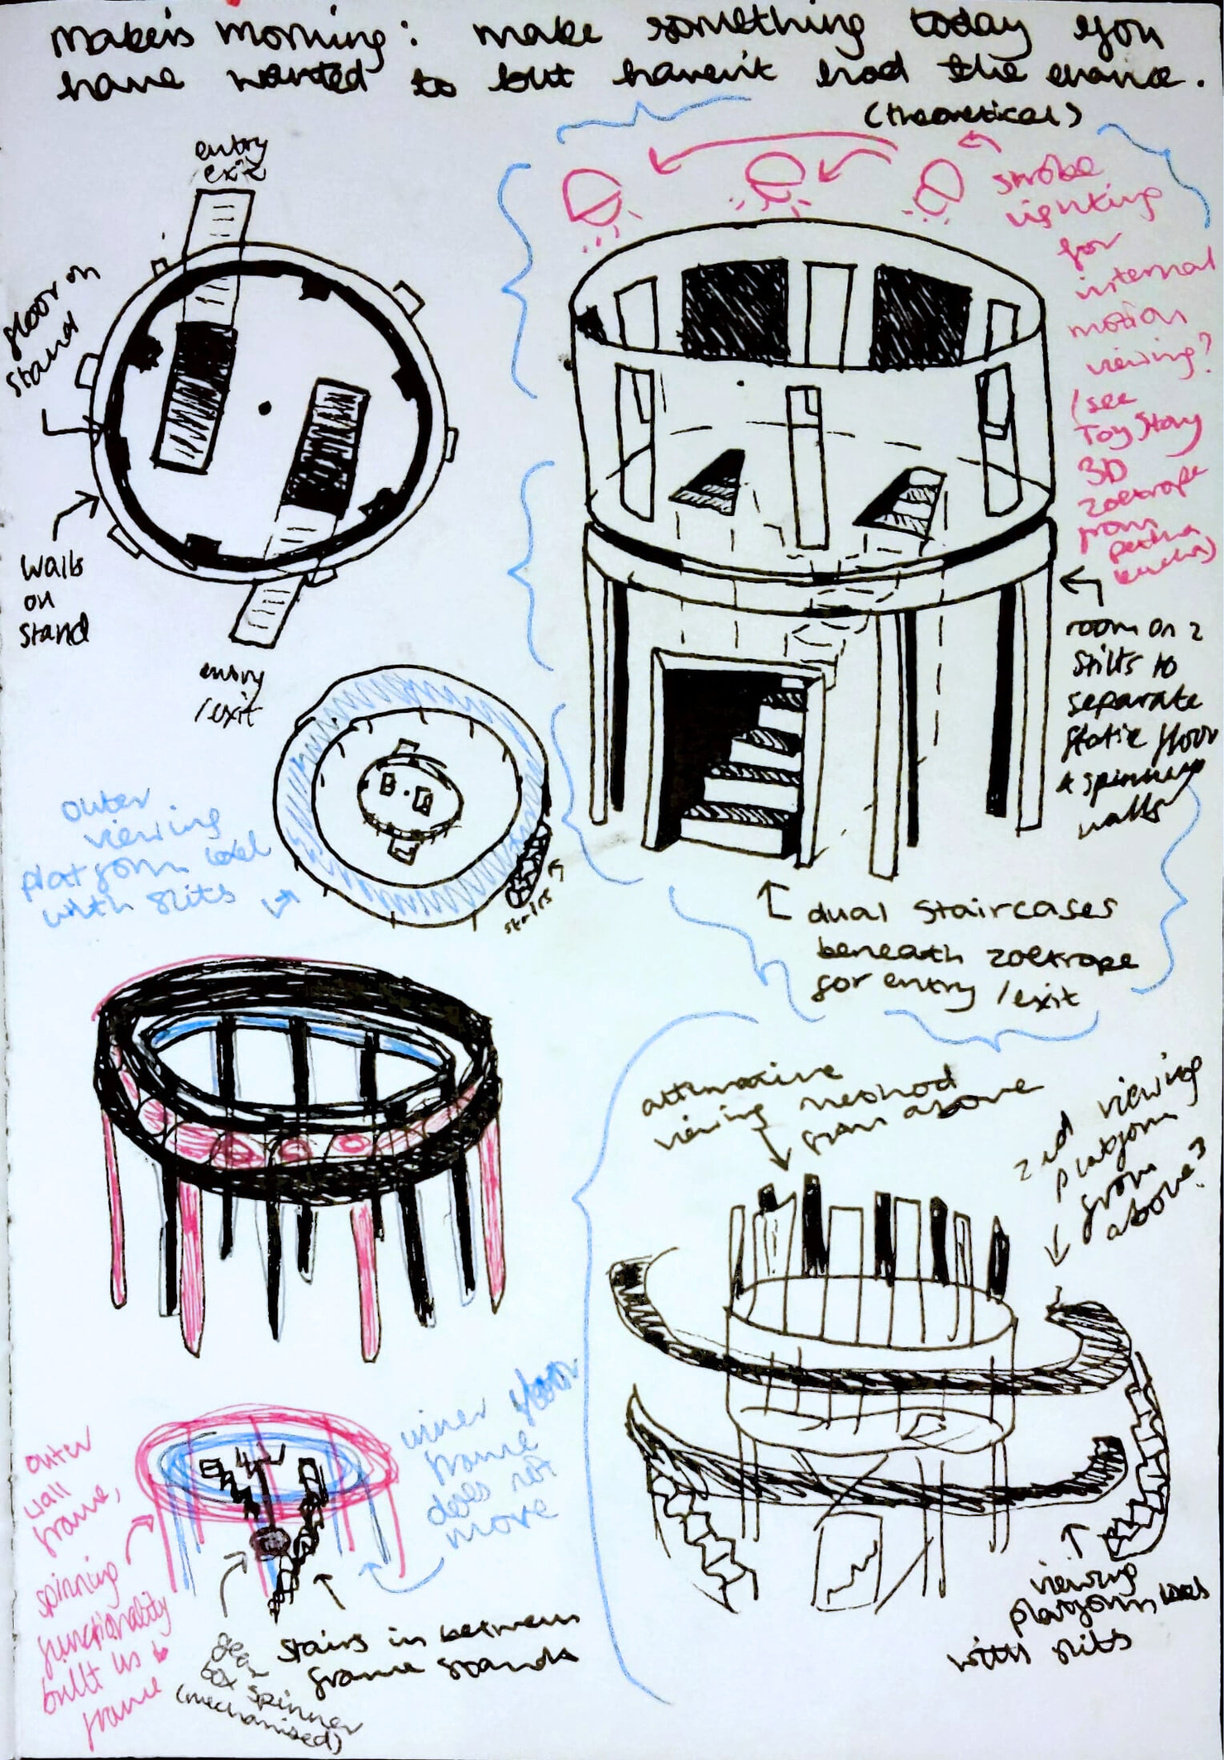 Makers morning: make something today you
have wanted to but haven't had the chance.
(theoretical)
entry
exit
floor on
stand
walls
on
stand
entry
/exit
strobe
lighting
for
internal
motion
viewing?
(see
Toy Story
3D
zoetrope
from
room on 2
stilts to
separate
static floor
& spinning
walls
outer
viewing
platform level
with slits
stairs
dual staircases
beneath zoetrope
for entry/exit
alternative
viewing method
from above
2nd viewing
platform
from
above?
outer
wall
frame,
spinning
functionality
built
frame
inner floor
frame
does not
move
gear
box spinner
(mechanised)
stairs in between
frame stands
viewing
platform level
with slits